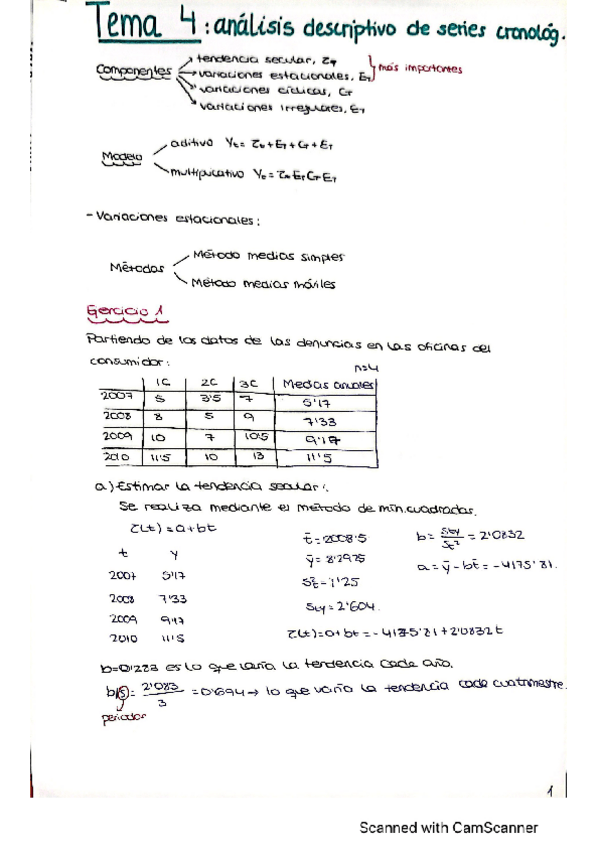 Tema 4: análisis descriptivo de series cronológ.
Componentes
tendencia secular, τT
variaciones estacionales, ET
más importantes
variaciones cíclicas, CT
variaciones irregulares, ET
Modelo
aditivo Yt = τt + ET + CT + ET
multiplicativo Yt =
- Variaciones estacionales:
Métodos
Método medias simples
Método medias móviles
Ejercicio 1
Partiendo de los datos de las denuncias en las oficinas del
consumidor:
n=4
1C 2C 3C Medias anuales
2007 5 3'5 7 5'17
2008 8 5 9 7'33
2009 10 7 10'5 9'17
2010 11'5 10 13 11'5
a) Estimar la tendencia secular:
Se realiza mediante el método de mín. cuadrados.
τ(t) = a + bt
t y
2007 5'17
2008 7'33
2009 9'17
2010 11'5
t̄ = 2008'5
ȳ = 8'2925
St² = 1'25
Sty = 2'604
b = Sty/St² = 2'0832
a = ȳ - bt̄ = -4175'81.
τ(t) = a + bt = -4175'81 + 2'0832t
es lo que varía la tendencia cada año.
b/(S) = 2'083/3 = 0'694 → lo que varía la tendencia cada cuatrimestre.
periodos
1
Scanned with CamScanner